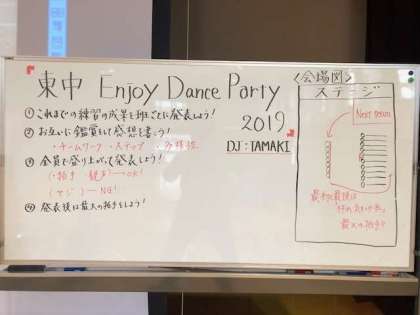 東中 Enjoy Dance Party
2019
DJ:TAMAKI
①これまでの練習の成果を班ごとに発表しよう!
②お互いに鑑賞をして感想を書こう!
・チームワーク ・ステップ ・多様性
③全員で盛り上がって発表しよう!
(・拍手 ・歓声) → OK!
(ヤジ) → NG!
④発表後は最大の拍手をしよう!
〈会場図〉
ステージ
Next team
最初と最後は
最大の拍手を